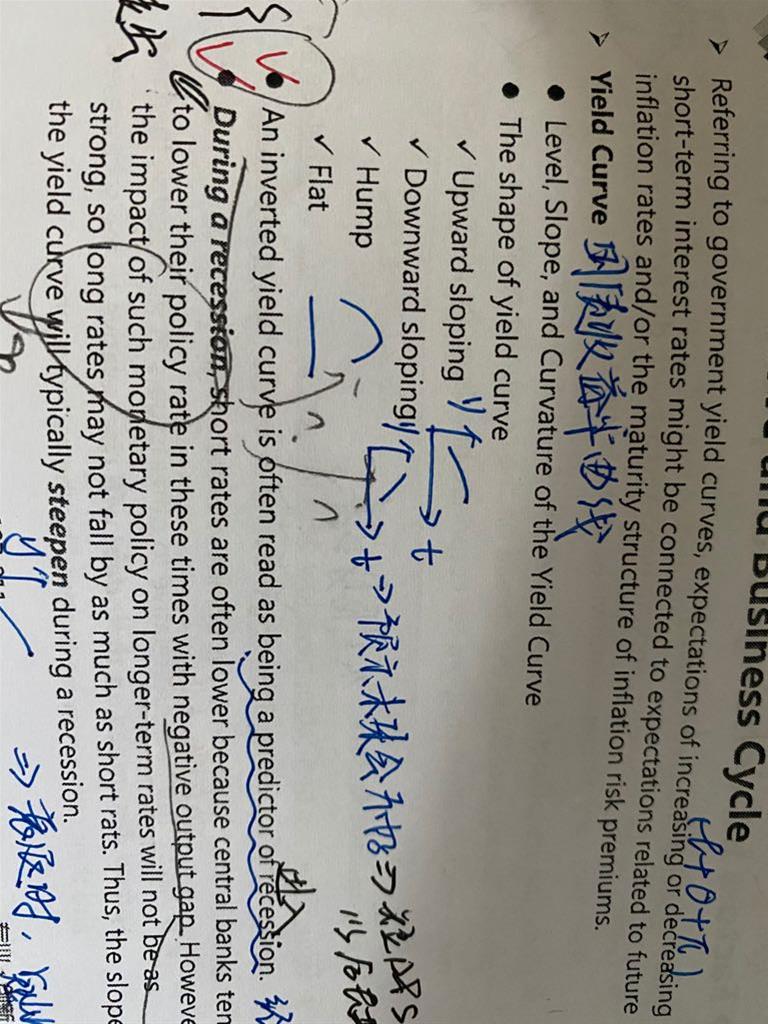 and Business Cycle
➢ Referring to government yield curves, expectations of increasing or decreasing
short-term interest rates might be connected to expectations related to future
inflation rates and/or the maturity structure of inflation risk premiums.
(l+θ+π)
➢ Yield Curve 国债收益率曲线
● Level, Slope, and Curvature of the Yield Curve
● The shape of yield curve
✓ Upward sloping y t
✓ Downward sloping y t ⇒
✓ Hump
✓ Flat
● An inverted yield curve is often read as being a predictor of recession.
进入
● During a recession, short rates are often lower because central banks ten
to lower their policy rate in these times with negative output gap. Howeve
the impact of such monetary policy on longer-term rates will not be as
strong, so long rates may not fall by as much as short rats. Thus, the slope
the yield curve will typically steepen during a recession.
⇒ 衰退时,